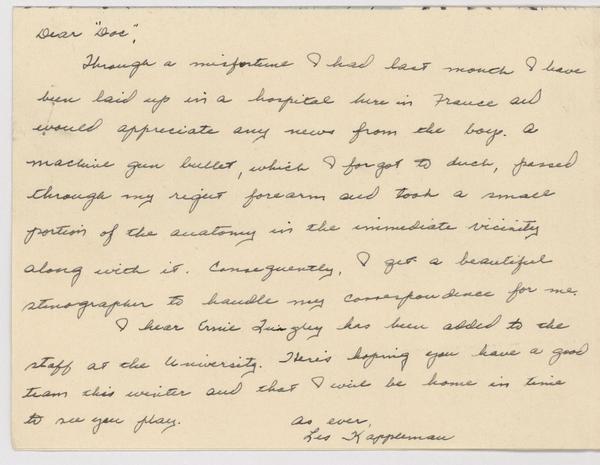 Dear "Doc",
Through a misfortune I had last month I have
been laid up in a hospital here in France and
would appreciate any news from the boys. A
machine gun bullet, which I forgot to duck, passed
through my right forearm and took a small
portion of the anatomy in the immediate vicinity
along with it. Consequently, I get a beautiful
stenographer to handle my correspondence for me.
I hear Ernie Quigley has been added to the
staff at the University. Here's hoping you have a good
team this winter and that I will be home in time
to see you play.
As ever,
Les Kappleman